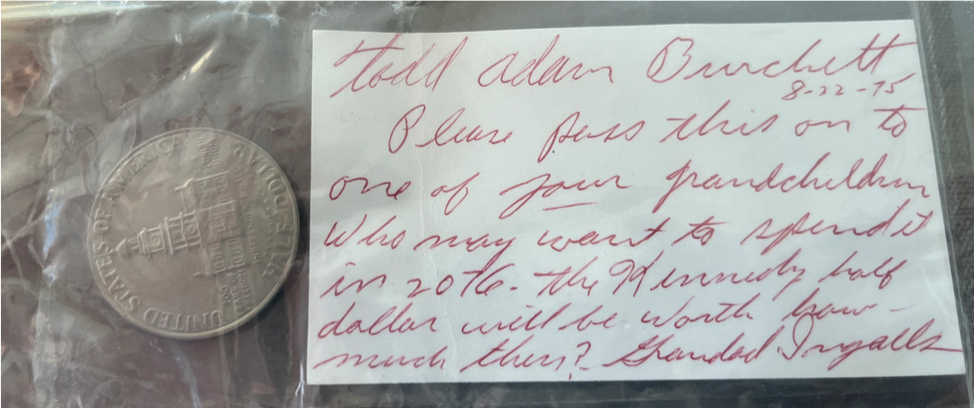 Todd Adam Burchett
8-22-75
Please pass this on to
one of your grandchildren
who may want to spend it
in 2076. The Kennedy half
dollar will be worth how
much then? Grandad Ingalls
UNITED STATES OF AMERICA
HALF DOLLAR
200